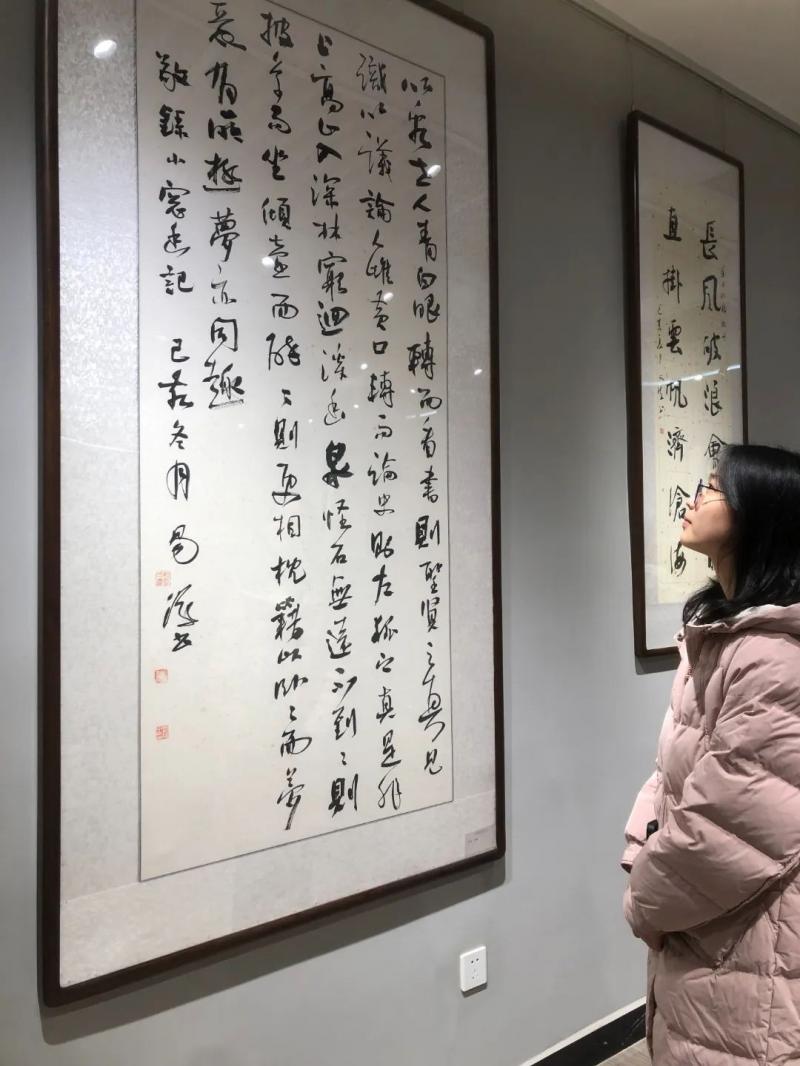 以看世人青白眼轉而看書則聖賢之真見
識以議論人雌黃口轉而論史則左狐之真是非
上高山入深林窮迴溪幽泉怪石無遠不到〻則
披草而坐傾壺而醉〻則更相枕籍以臥〻而夢
意有所極夢亦同趣
敬錄小窗幽記 己亥冬月 易
長風破浪會
直掛雲帆濟滄海